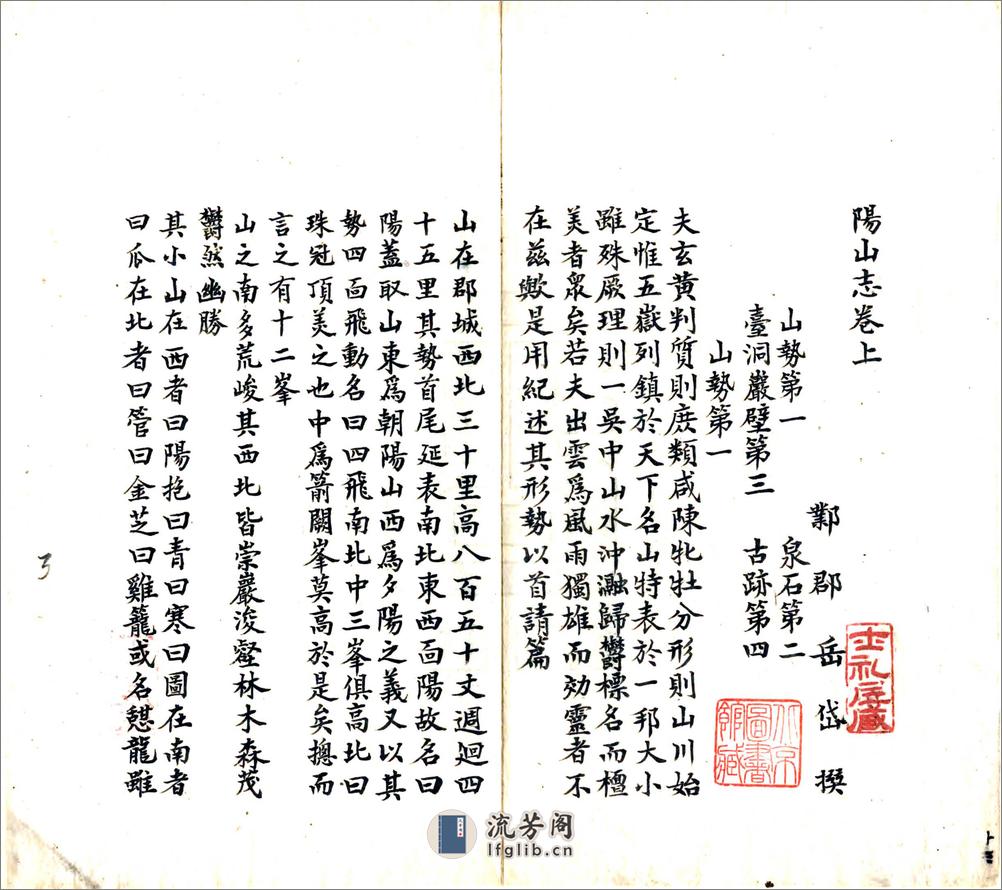 陽山志卷上
鄴郡岳岱撰
山勢第一　泉石第二
臺洞巖壁第三　古跡第四
山勢第一
夫玄黃判質則庶類咸陳牝牡分形則山川始
定惟五嶽列鎮於天下名山特表於一邦大小
雖殊厥理則一吳中山水沖瀜歸欝標名而檀
美者衆矣若夫出雲爲風雨獨雄而効靈者不
在兹歟是用紀述其形勢以首請篇
山在郡城西北三十里高八百五十丈週迴四
十五里其勢首尾延袤南北東西面陽故名曰
陽蓋取山東爲朝陽山西爲夕陽之義又以其
勢四面飛動名曰四飛南北中三峯俱高北曰
珠冠頂美之也中爲箭闕峯莫高於是矣摠而
言之有十二峯
山之南多荒峻其西北皆崇巖浚壑林木森茂
欝然幽勝
其小山在西者曰陽抱曰青曰寒曰圖在南者
曰瓜在北者曰管曰金芝曰雞籠或名憇龍雖
士礼居藏
北京圖書館藏
流芳阁
lfglib.cn